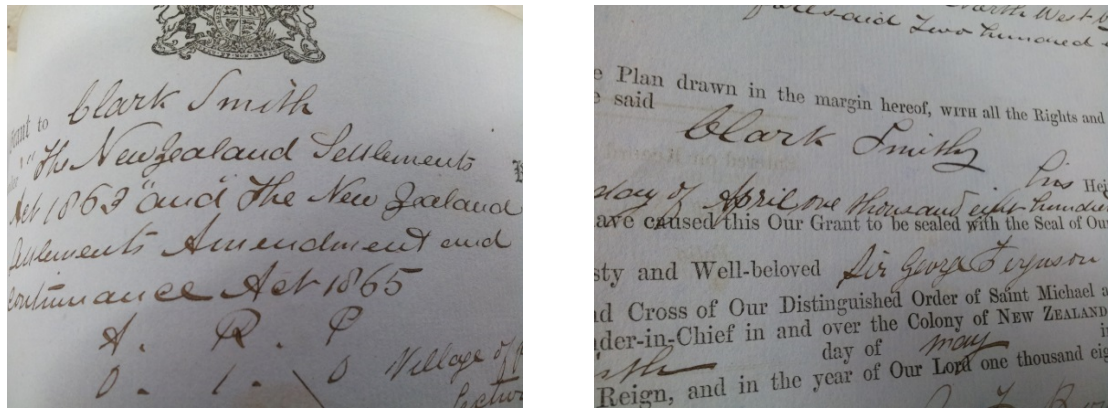 Grant to Clark Smith
"The New Zealand Settlements
Act 1863" and "The New Zealand
Settlements Amendment and
Continuance Act 1865
A. R. P
0. 1. 0 Village of
North West
aforesaid Two hundred
e Plan drawn in the margin hereof, WITH all the Rights and
e said
Clark Smith
his Hei
day of April one thousand eight hundred
ave caused this Our Grant to be sealed with the Seal of Our
sty and Well-beloved Sir George Ferguson
d Cross of Our Distinguished Order of Saint Michael a
der-in-Chief in and over the Colony of NEW ZEALAND
day of may
Reign, and in the year of Our Lord one thousand eig